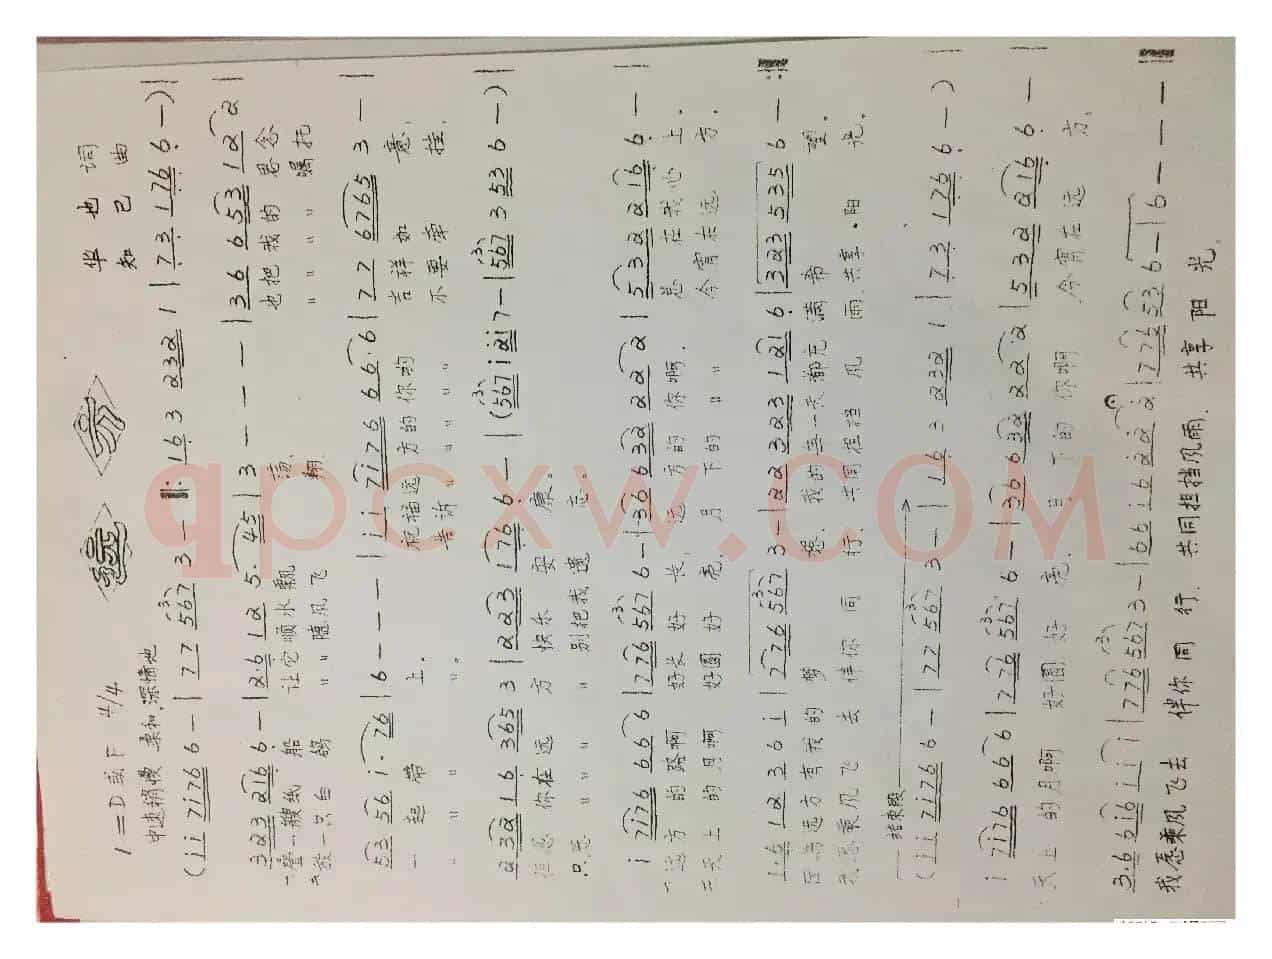 远方
华也 词
知己 曲
1=D或F 4/4
中速稍慢 柔和 深情地
(i i 7i76 6 — | 7 7 567 3 — ‖: 1 6 3 232 1 | 7 3 176 6 —) |
3 23 216 6 — | 2·6 12 5·45 | 3 — — — | 36 6 53 12 2 |
一叠一艘纸船 让它顺水飘荡, 也把我的思念
二放一只白鸽 〃〃随风飞翔, 〃〃〃〃嘱托
53 56 i·76 | 6 — — — | i i 7i76 66·6 | 77 6765 3 — |
一起带上. 祝福远方的你哟 吉祥如意,
〃〃〃〃。 告诉〃〃〃〃〃 不要牵挂,
232 16 365 3 | 223 176 6 — | (567 i 2i 7 — | 567 3 53 6 —) |
但愿你在远方 快乐安康。
只愿〃〃〃〃 别把我遗忘。
i 7i76 66 6 | 776 567 6 — | 36 632 22 2 | 5 32 216 6 — |
一远方的路啊 好长好长, 远方的你啊, 总在我心上.
二天上的月啊 好圆好亮, 月下的〃〃 今宵在远方.
1·6 12 36 i | 776 567 3 — | 22 323 121 6 | 323 535 6 — :‖
我愿乘风飞去 伴你同行. 共同担挡风雨.共享·阳光.
结束段
(i i 7i76 6 — | 77 567 3 — | 1 6 3 232 1 | 7 3 176 6 —) |
i 7i76 66 6 | 776 567 6 — | 36 632 22 2 | 5 32 216 6 — |
天上的月啊 好圆好亮, 月下的你啊 今宵在远方.
3·6 6i6 i i i | 776 567 3 — | 66 i6 i2 2 2 | 776 536 — | 6 — — — ‖
我愿乘风飞去 伴你同行. 共同担挡风雨. 共享阳光.
qpcxw.COM